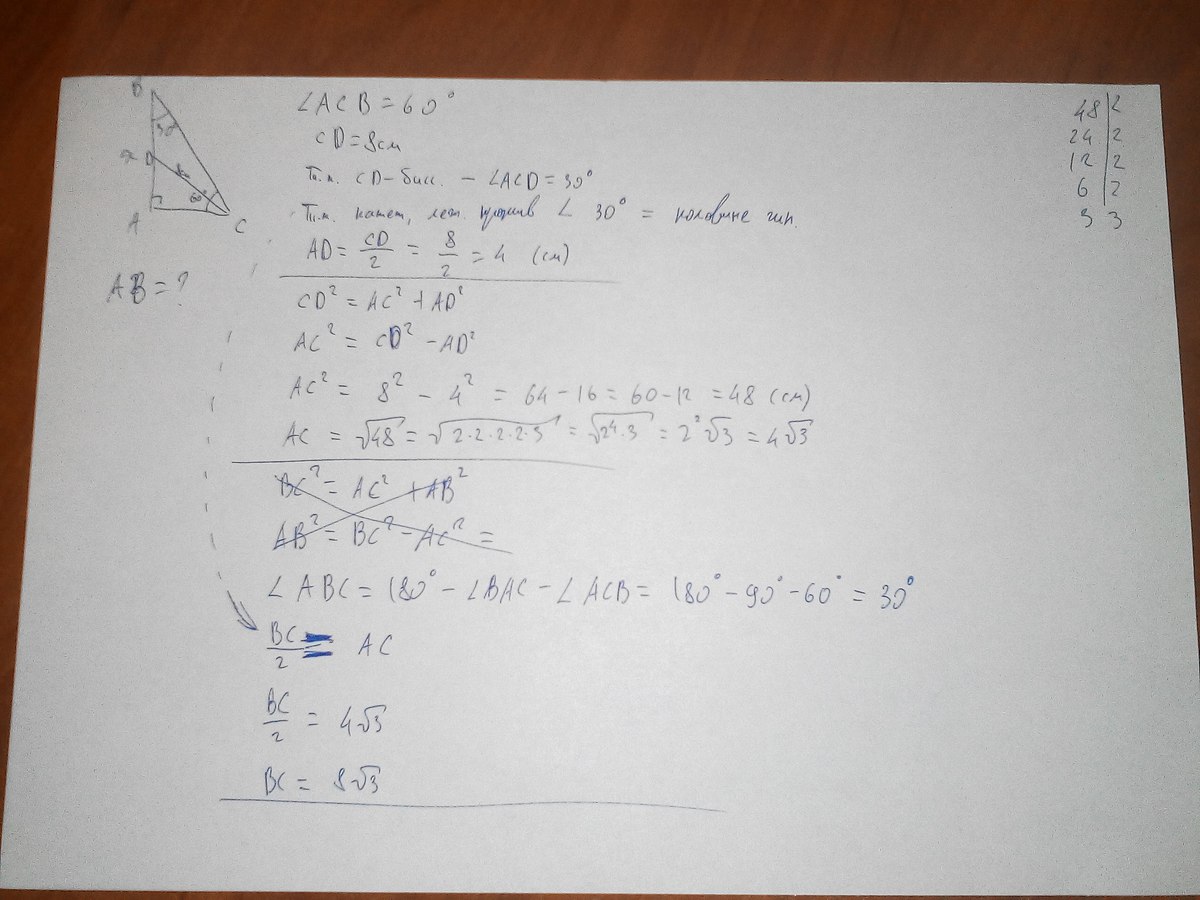 B
30°
D
60°
A
C
AB = ?
∠ACB = 60°
CD = 8см
Т.к. CD - бисс. - ∠ACD = 30°
Т.к. катет, леж. против ∠ 30° = половине гип.
AD = CD/2 = 8/2 = 4 (см)
CD² = AC² + AD²
AC² = CD² - AD²
AC² = 8² - 4² = 64 - 16 = 60 - 12 = 48 (см)
AC = √48 = √2·2·2·2·3 = √2⁴·3 = 2²√3 = 4√3
BC² = AC² + AB²
AB² = BC² - AC² =
∠ABC = 180° - ∠BAC - ∠ACB = 180° - 90° - 60° = 30°
BC/2 = AC
BC/2 = 4√3
BC = 8√3
48 | 2
24 | 2
12 | 2
6 | 2
3 3